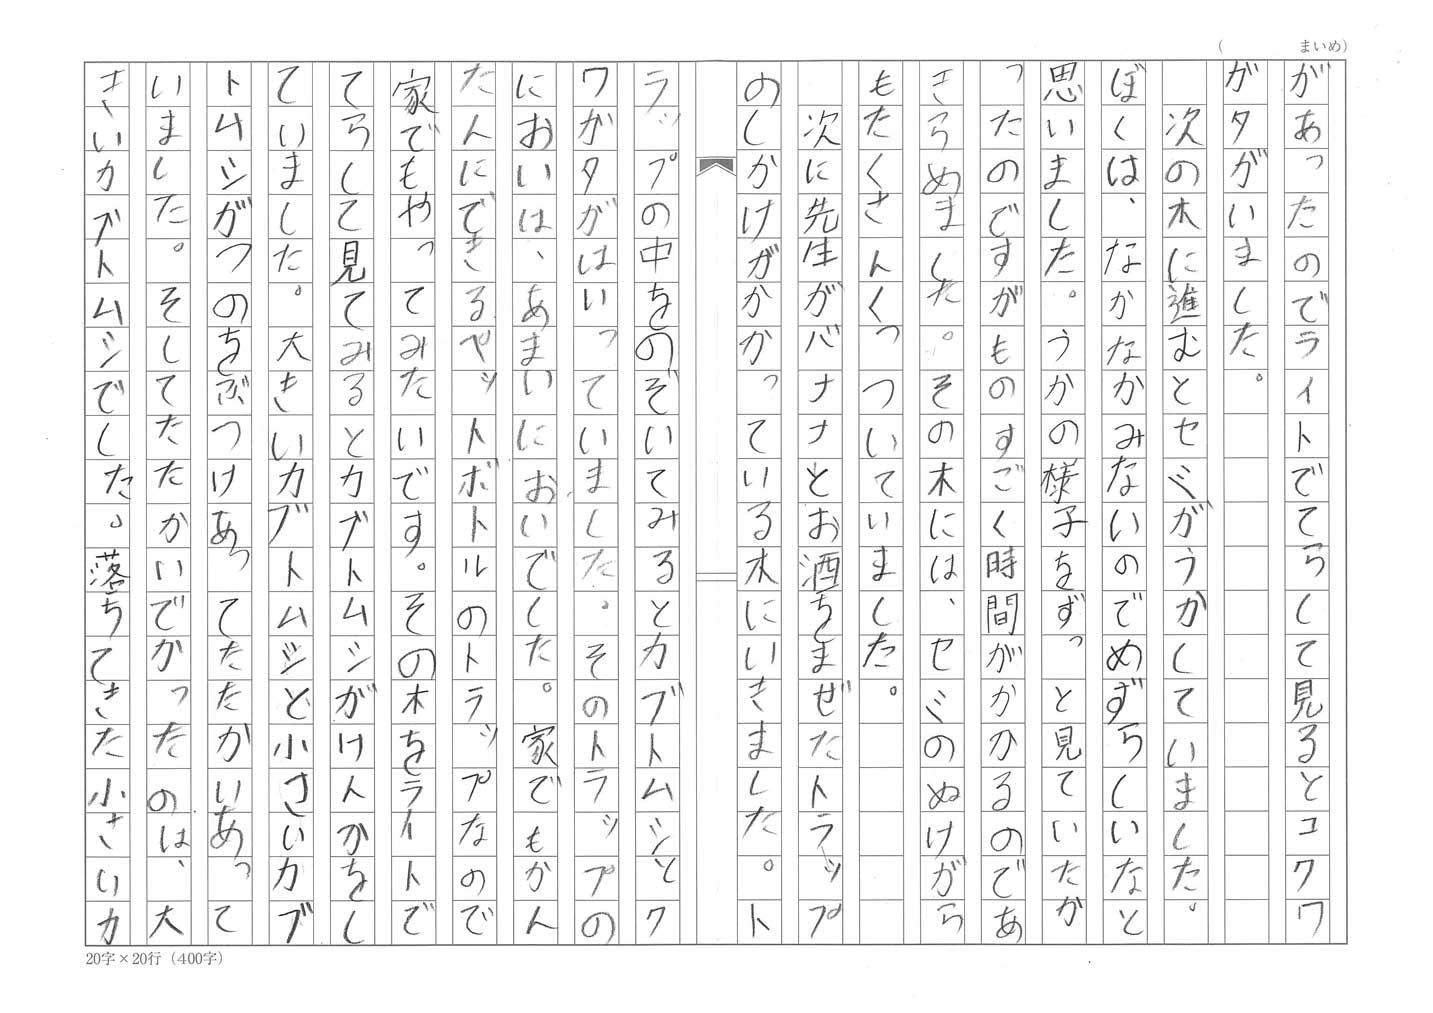 ( まいめ)
があったのでライトでてらして見るとコクワ
がタがいました。
次の木に進むとセミがうかしていました。
ぼくは、なかなかみないのでめずらしいなと
思いました。うかの様子をずっと見ていたか
ったのですがものすごく時間がかかるのであ
きらめました。その木には、セミのぬけがら
もたくさんくっついていました。
次に先生がバナナとお酒をまぜたトラップ
のしかけがかかっている木にいきました。ト
ラップの中をのぞいてみるとカブトムシとク
ワがタがはいっていました。そのトラップの
においは、あまいにおいでした。家でもかん
たんにできるペットボトルのトラップなので
家でもやってみたいです。その木をライトで
てらして見てみるとカブトムシがけんかをし
ていました。大きいカブトムシと小さいカブ
トムシがつのをぶつけあってたたかいあって
いました。そしてたたかいでかったのは、大
きいカブトムシでした。落ちてきた小さいカ
20字×20行(400字)